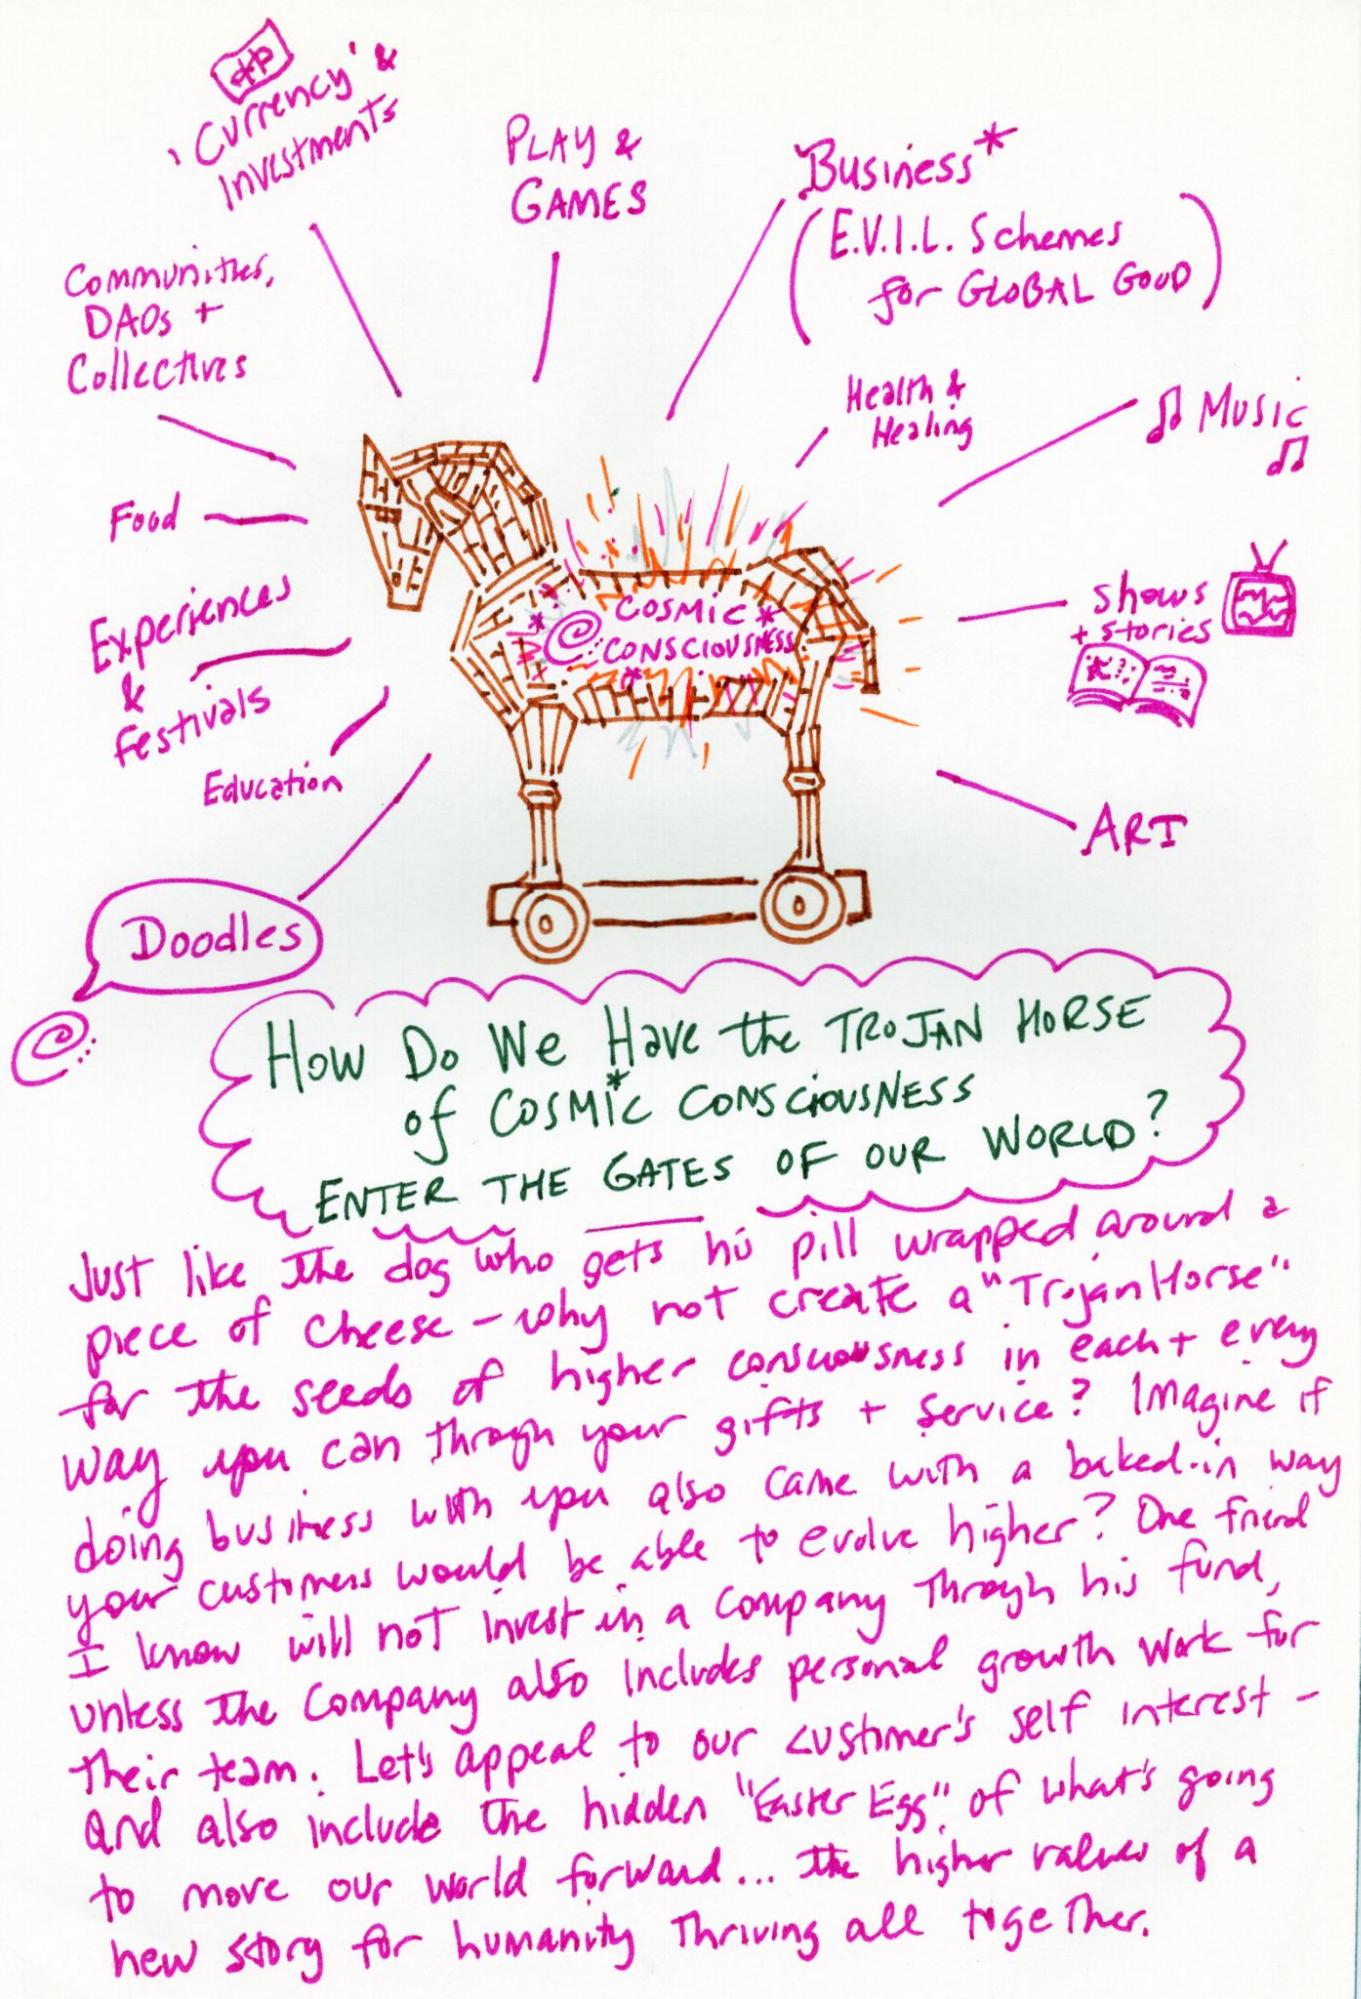 'Currency' &
Investments
PLAY &
GAMES
Business*
(E.V.I.L. Schemes
for GLOBAL GOOD)
Communities,
DAOs +
Collectives
Health &
Healing
Music
Food
Experiences
&
Festivals
shows
+ stories
COSMIC *
CONSCIOUSNESS
Education
ART
Doodles
How Do We Have the TROJAN HORSE
of COSMIC CONSCIOUSNESS
ENTER THE GATES OF OUR WORLD?
Just like the dog who gets his pill wrapped around a
piece of cheese – why not create a "Trojan Horse"
for the seeds of higher consciousness in each + every
way you can through your gifts + service? Imagine if
doing business with you also came with a baked-in way
your customers would be able to evolve higher? One friend
I know will not invest in a company through his fund,
unless the company also includes personal growth work for
their team. Let's appeal to our customer's self interest –
and also include the hidden "Easter Egg" of what's going
to move our world forward... the higher values of a
new story for humanity thriving all together.